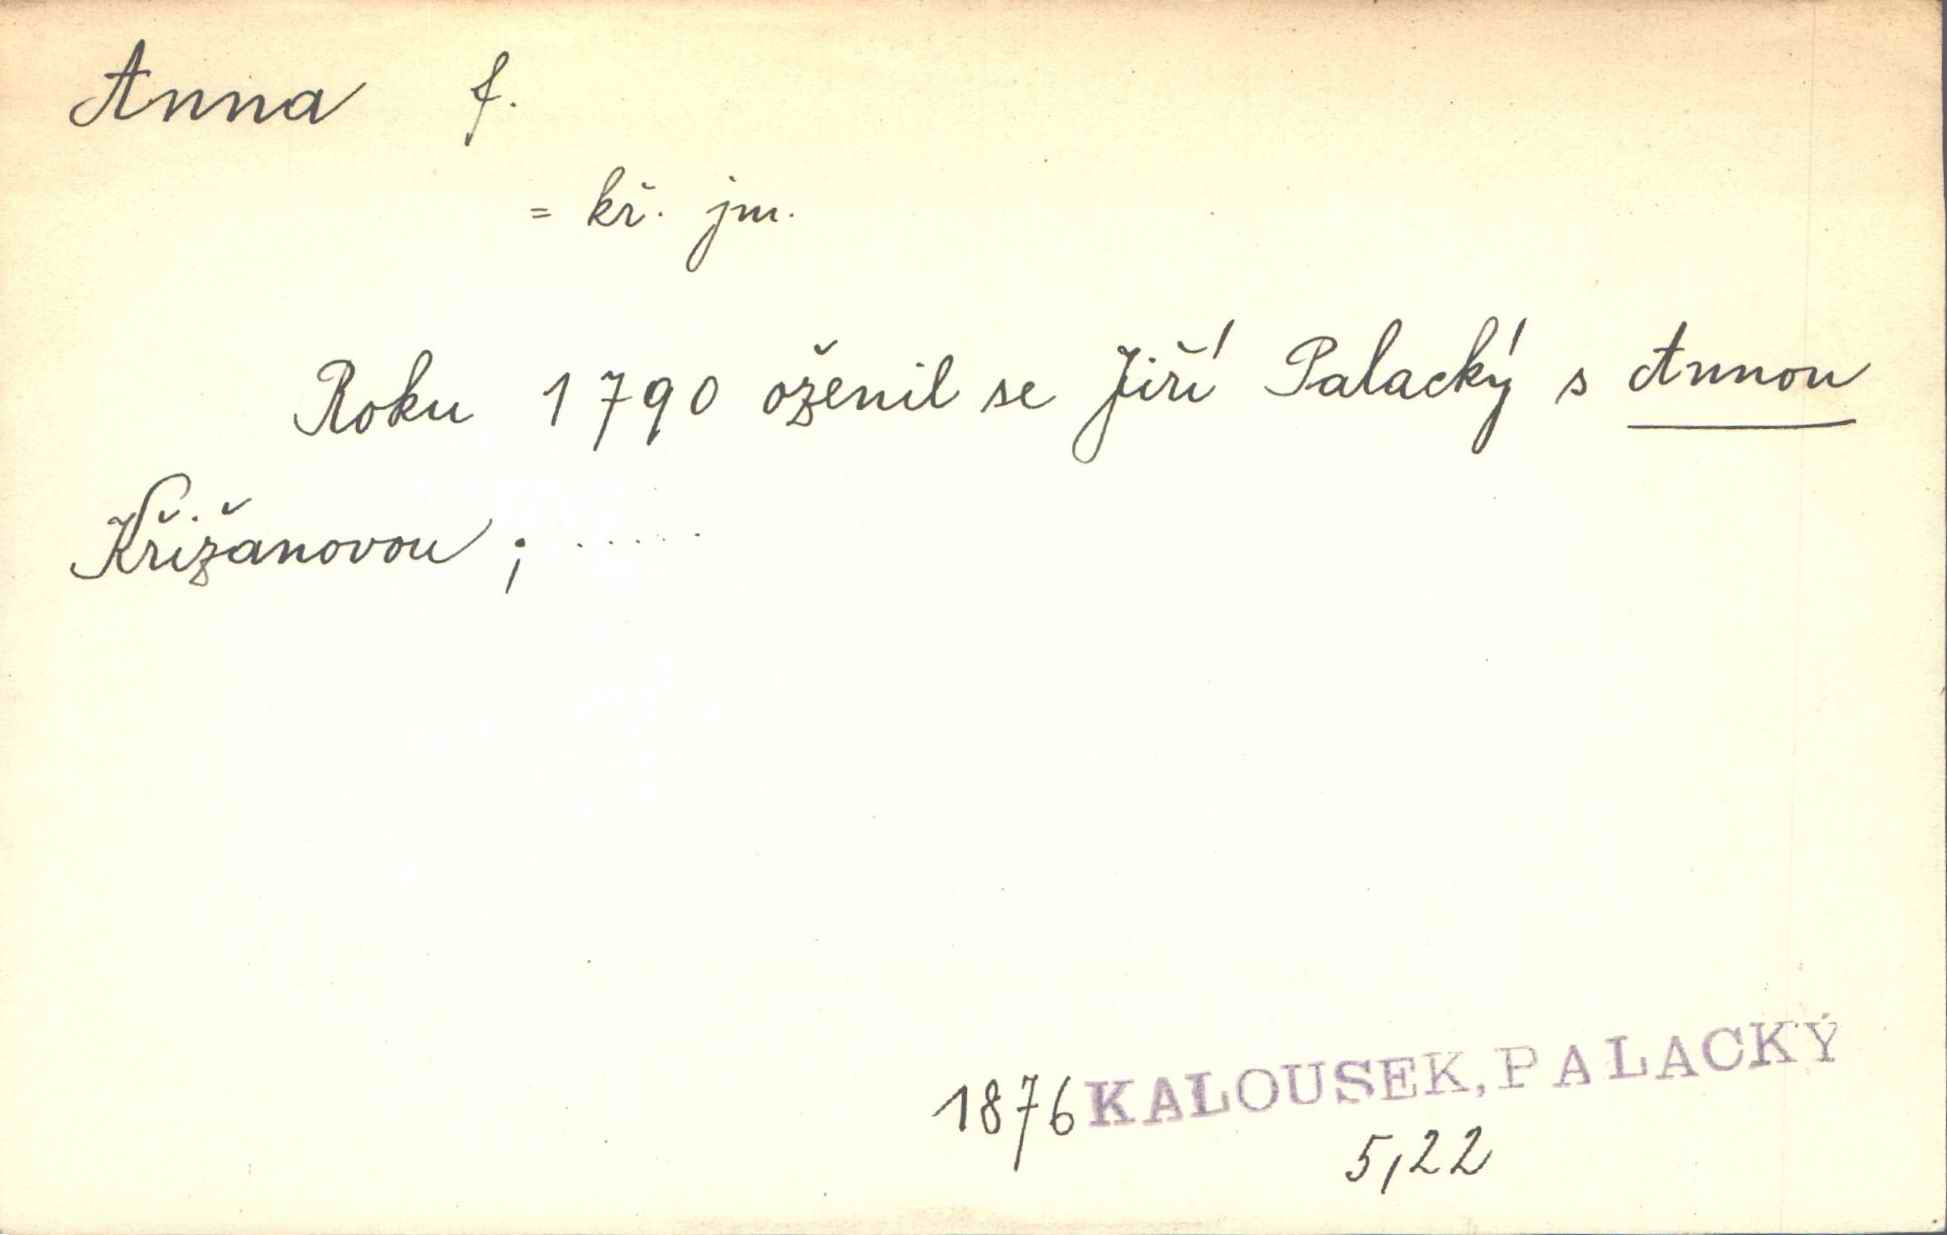 Anna f.
= kř. jm.
Roku 1790 oženil se Jiří Palacký s Annou
Křižanovou ; .....
1876 KALOUSEK, PALACKÝ
5,22